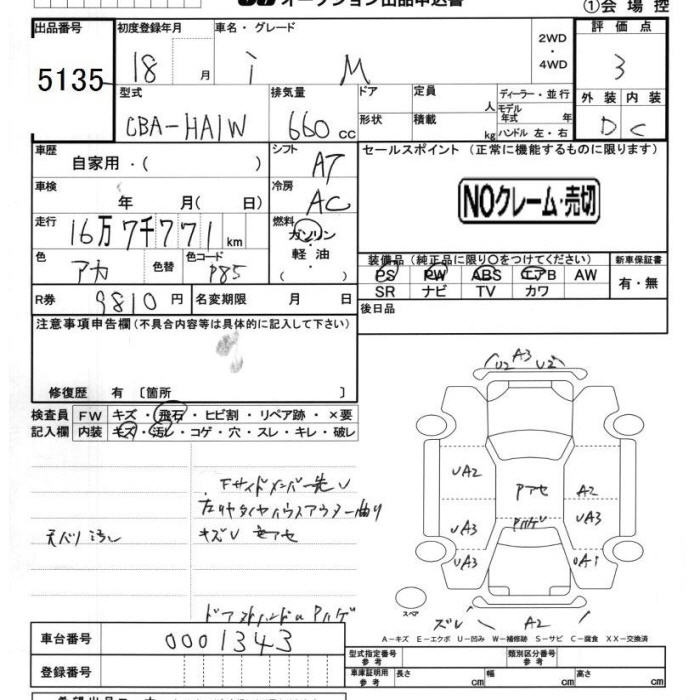 オークション出品申込書
①会場控
出品番号 初度登録年月 車名・グレード 評価点
5135 18 月 i M 2WD・4WD 3
型式 排気量 ドア 定員 人 ディーラー・並行 外装 内装
CBA-HA1W 660 cc 形状 積載 kg モデル年式 年 ハンドル 左・右 D C
車歴 自家用・( ) シフト AT セールスポイント (正常に機能するものに限ります)
車検 年 月( 日) 冷房 AC NOクレーム・売切
走行 16万7千771 km 燃料 ガソリン・軽油・( )
色 アカ 色替 色コード P85 装備品 (純正品に限り○をつけてください) 新車保証書
PS PW ABS エアB AW 有・無
SR ナビ TV カワ
R券 9810 円 名変期限 月 日 後日品
注意事項申告欄 (不具合内容等は具体的に記入して下さい)
修復歴 有 〔箇所 〕
検査員 FW キズ・飛石・ヒビ割・リペア跡・×要
記入欄 内装 キズ・汚レ・コゲ・穴・スレ・キレ・破レ
U2 A3 U2
UA2 Pアセ A2
UA3 Pハゲ UA3
UA3 UA1
Fサイドメンバー先U
左リヤタイヤハウスアウター曲り
天バリ汚レ キズU
ドアストハンドル Pハゲ
スペア ズレ A2
A−キズ E−エクボ U−凹み W−補修跡 S−サビ C−腐食 XX−交換済
車台番号 0001343 型式指定番号 参考 類別区分番号 参考
登録番号 車庫証明用 参考 長さ cm 幅 cm 高さ cm